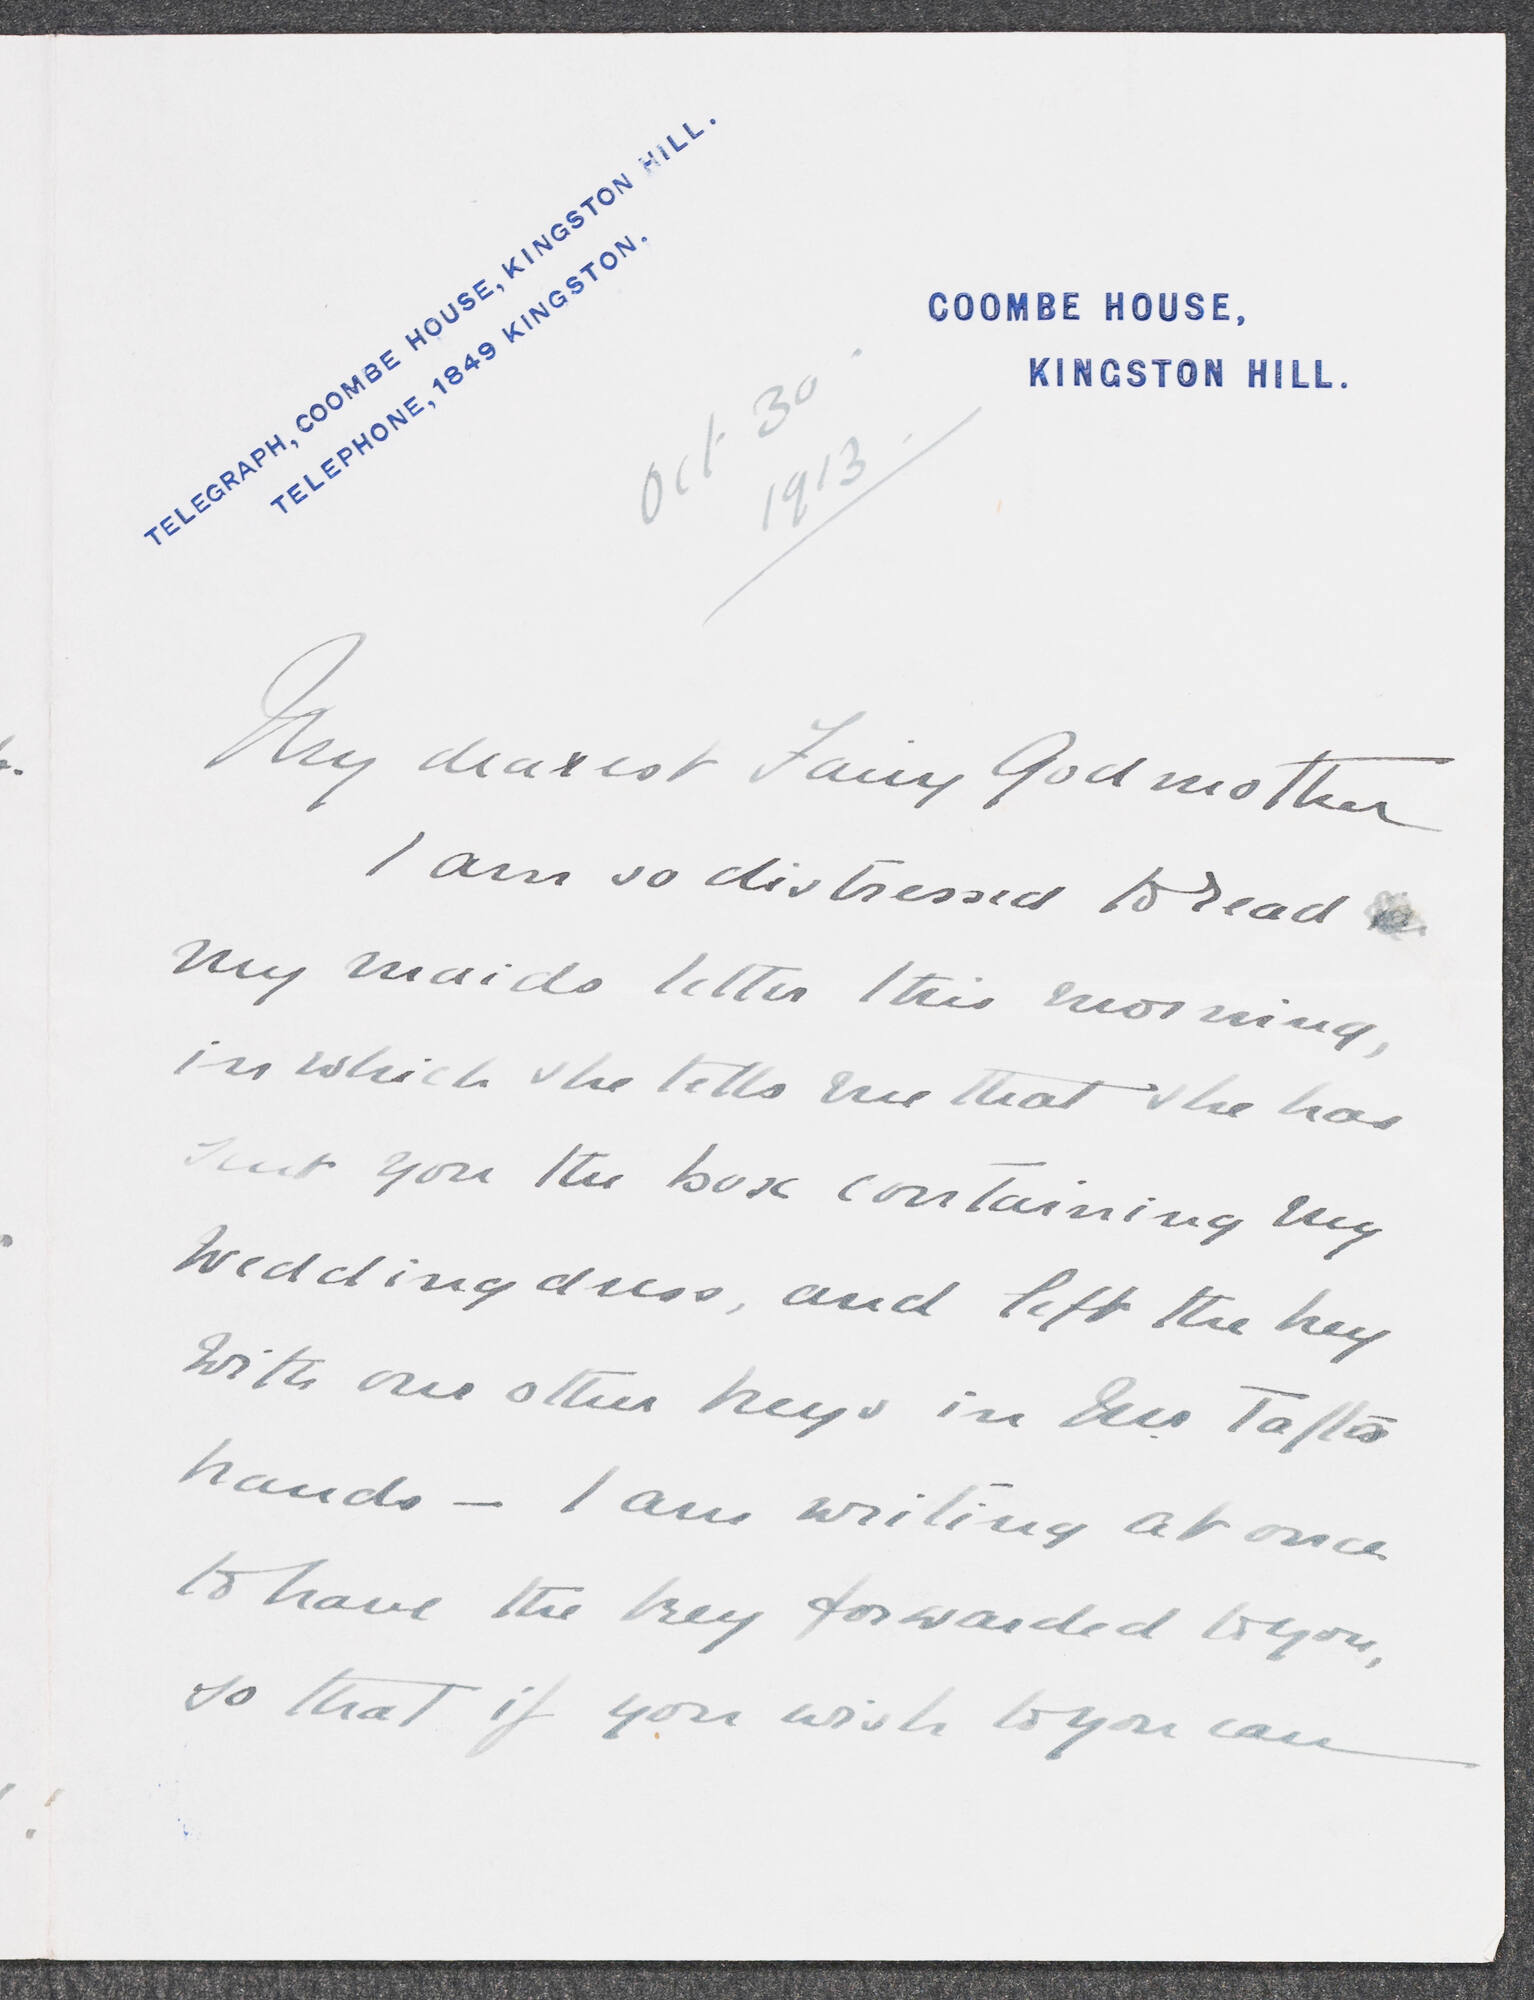 TELEGRAPH, COOMBE HOUSE, KINGSTON HILL.
TELEPHONE, 1849 KINGSTON.
COOMBE HOUSE,
KINGSTON HILL.
Oct 30.
1913.
My dearest Fairy Godmother
I am so distressed to read
my maids letter this morning,
in which she tells me that she has
sent you the box containing my
wedding dress, and left the key
with our other keys in Mrs Tafts
hands — I am writing at once
to have the key forwarded to you,
so that if you wish to you can